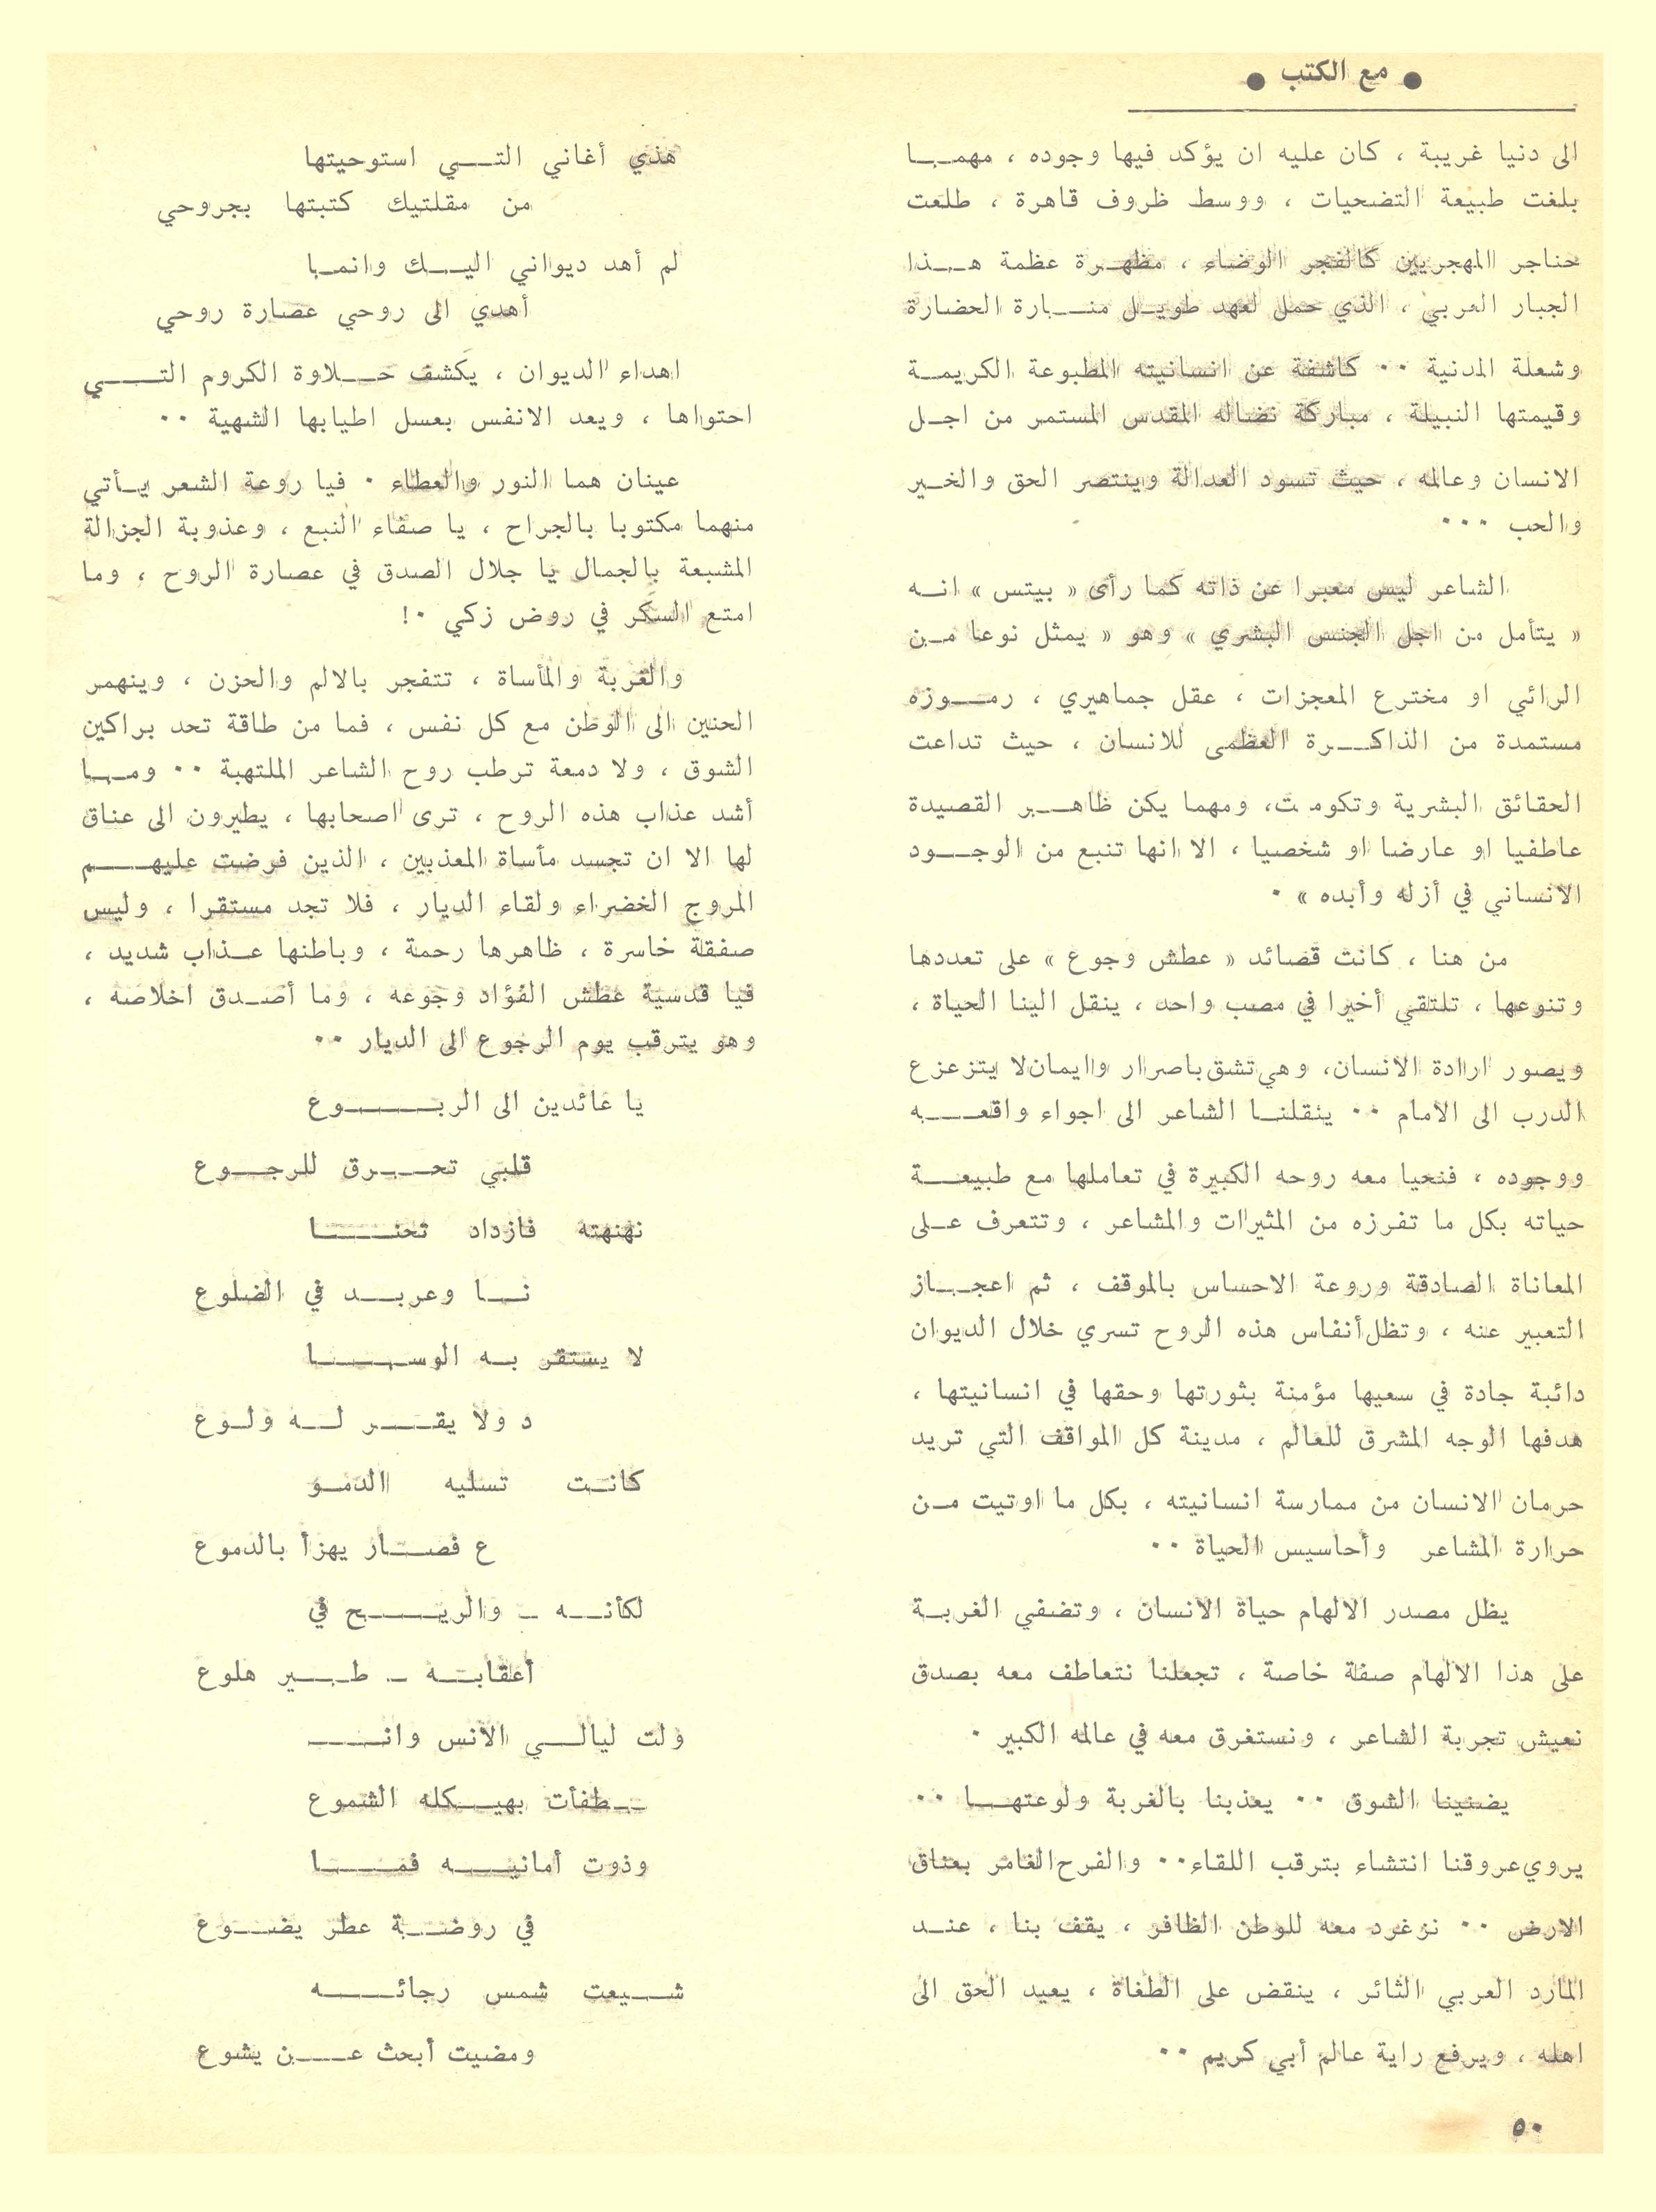 ● مع الكتب ●
الى دنيا غريبة ، كان عليه ان يؤكد فيها وجوده ، مهما
بلغت طبيعة التضحيات ، ووسط ظروف قاهرة ، طلعت
حناجر المهجريين كالفجر الوضاء ، مظهرة عظمة هذا
الجبار العربي ، الذي حمل لعهد طويل منارة الحضارة
وشعلة المدنية ٠٠ كاشفة عن انسانيته المطبوعة الكريمة
وقيمتها النبيلة ، مباركة نضاله المقدس المستمر من اجل
الانسان وعالمه ، حيث تسود العدالة وينتصر الحق والخير
والحب ٠٠٠
الشاعر ليس معبرا عن ذاته كما رأى « بيتس » انه
« يتأمل من اجل الجنس البشري » وهو « يمثل نوعا من
الرائي او مخترع المعجزات ، عقل جماهيري ، رموزه
مستمدة من الذاكرة العظمى للانسان ، حيث تداعت
الحقائق البشرية وتكومت، ومهما يكن ظاهر القصيدة
عاطفيا او عارضا او شخصيا ، الا انها تنبع من الوجود
الانساني في أزله وأبده » ٠
من هنا ، كانت قصائد « عطش وجوع » على تعددها
وتنوعها ، تلتقي أخيرا في مصب واحد ، ينقل الينا الحياة ،
ويصور ارادة الانسان، وهي تشق باصرار وايمان لا يتزعزع
الدرب الى الامام ٠٠ ينقلنا الشاعر الى اجواء واقعه
ووجوده ، فنحيا معه روحه الكبيرة في تعاملها مع طبيعة
حياته بكل ما تفرزه من المثيرات والمشاعر ، وتتعرف على
المعاناة الصادقة وروعة الاحساس بالموقف ، ثم اعجاز
التعبير عنه ، وتظل أنفاس هذه الروح تسري خلال الديوان
دائبة جادة في سعيها مؤمنة بثورتها وحقها في انسانيتها ،
هدفها الوجه المشرق للعالم ، مدينة كل المواقف التي تريد
حرمان الانسان من ممارسة انسانيته ، بكل ما اوتيت من
حرارة المشاعر وأحاسيس الحياة ٠٠
يظل مصدر الالهام حياة الانسان ، وتضفي الغربة
على هذا الالهام صفة خاصة ، تجعلنا نتعاطف معه بصدق
نعيش تجربة الشاعر ، ونستغرق معه في عالمه الكبير ٠
يضنينا الشوق ٠٠ يعذبنا بالغربة ولوعتها ٠٠
يروي عروقنا انتشاء بترقب اللقاء ٠٠ والفرح الغامر بعناق
الارض ٠٠ نزغرد معه للوطن الظافر ، يقف بنا ، عند
المارد العربي الثائر ، ينقض على الطغاة ، يعيد الحق الى
اهله ، ويرفع راية عالم أبي كريم ٠٠
هذي أغاني التي استوحيتها
من مقلتيك كتبتها بجروحي
لم أهد ديواني اليك وانما
أهدي الى روحي عصارة روحي
اهداء الديوان ، يكشف حلاوة الكروم التي
احتواها ، ويعد الانفس بعسل اطيابها الشهية ٠٠
عينان هما النور والعطاء ٠ فيا روعة الشعر يأتي
منهما مكتوبا بالجراح ، يا صفاء النبع ، وعذوبة الجزالة
المشبعة بالجمال يا جلال الصدق في عصارة الروح ، وما
امتع السكر في روض زكي ٠!
والغربة والمأساة ، تتفجر بالالم والحزن ، وينهمر
الحنين الى الوطن مع كل نفس ، فما من طاقة تحد براكين
الشوق ، ولا دمعة ترطب روح الشاعر الملتهبة ٠٠ وما
أشد عذاب هذه الروح ، ترى اصحابها ، يطيرون الى عناق
لها الا ان تجسد مأساة المعذبين ، الذين فرضت عليهم
المروج الخضراء ولقاء الديار ، فلا تجد مستقرا ، وليس
صفقة خاسرة ، ظاهرها رحمة ، وباطنها عذاب شديد ،
فيا قدسية عطش الفؤاد وجوعه ، وما أصدق اخلاصه ،
وهو يترقب يوم الرجوع الى الديار ٠٠
يا عائدين الى الربوع
قلبي تحرق للرجوع
نهنهته فازداد تحنا
نا وعربد في الضلوع
لا يستقر به الوسا
د ولا يقر له ولوع
كانت تسليه الدمو
ع فصار يهزأ بالدموع
لكأنه – والريح في
أعقابه – طير هلوع
ولت ليالي الانس وانـ
ـطفأت بهيكله الشموع
وذوت أمانيه فما
في روضة عطر يضوع
شيعت شمس رجائه
ومضيت أبحث عن يشوع
٥٠